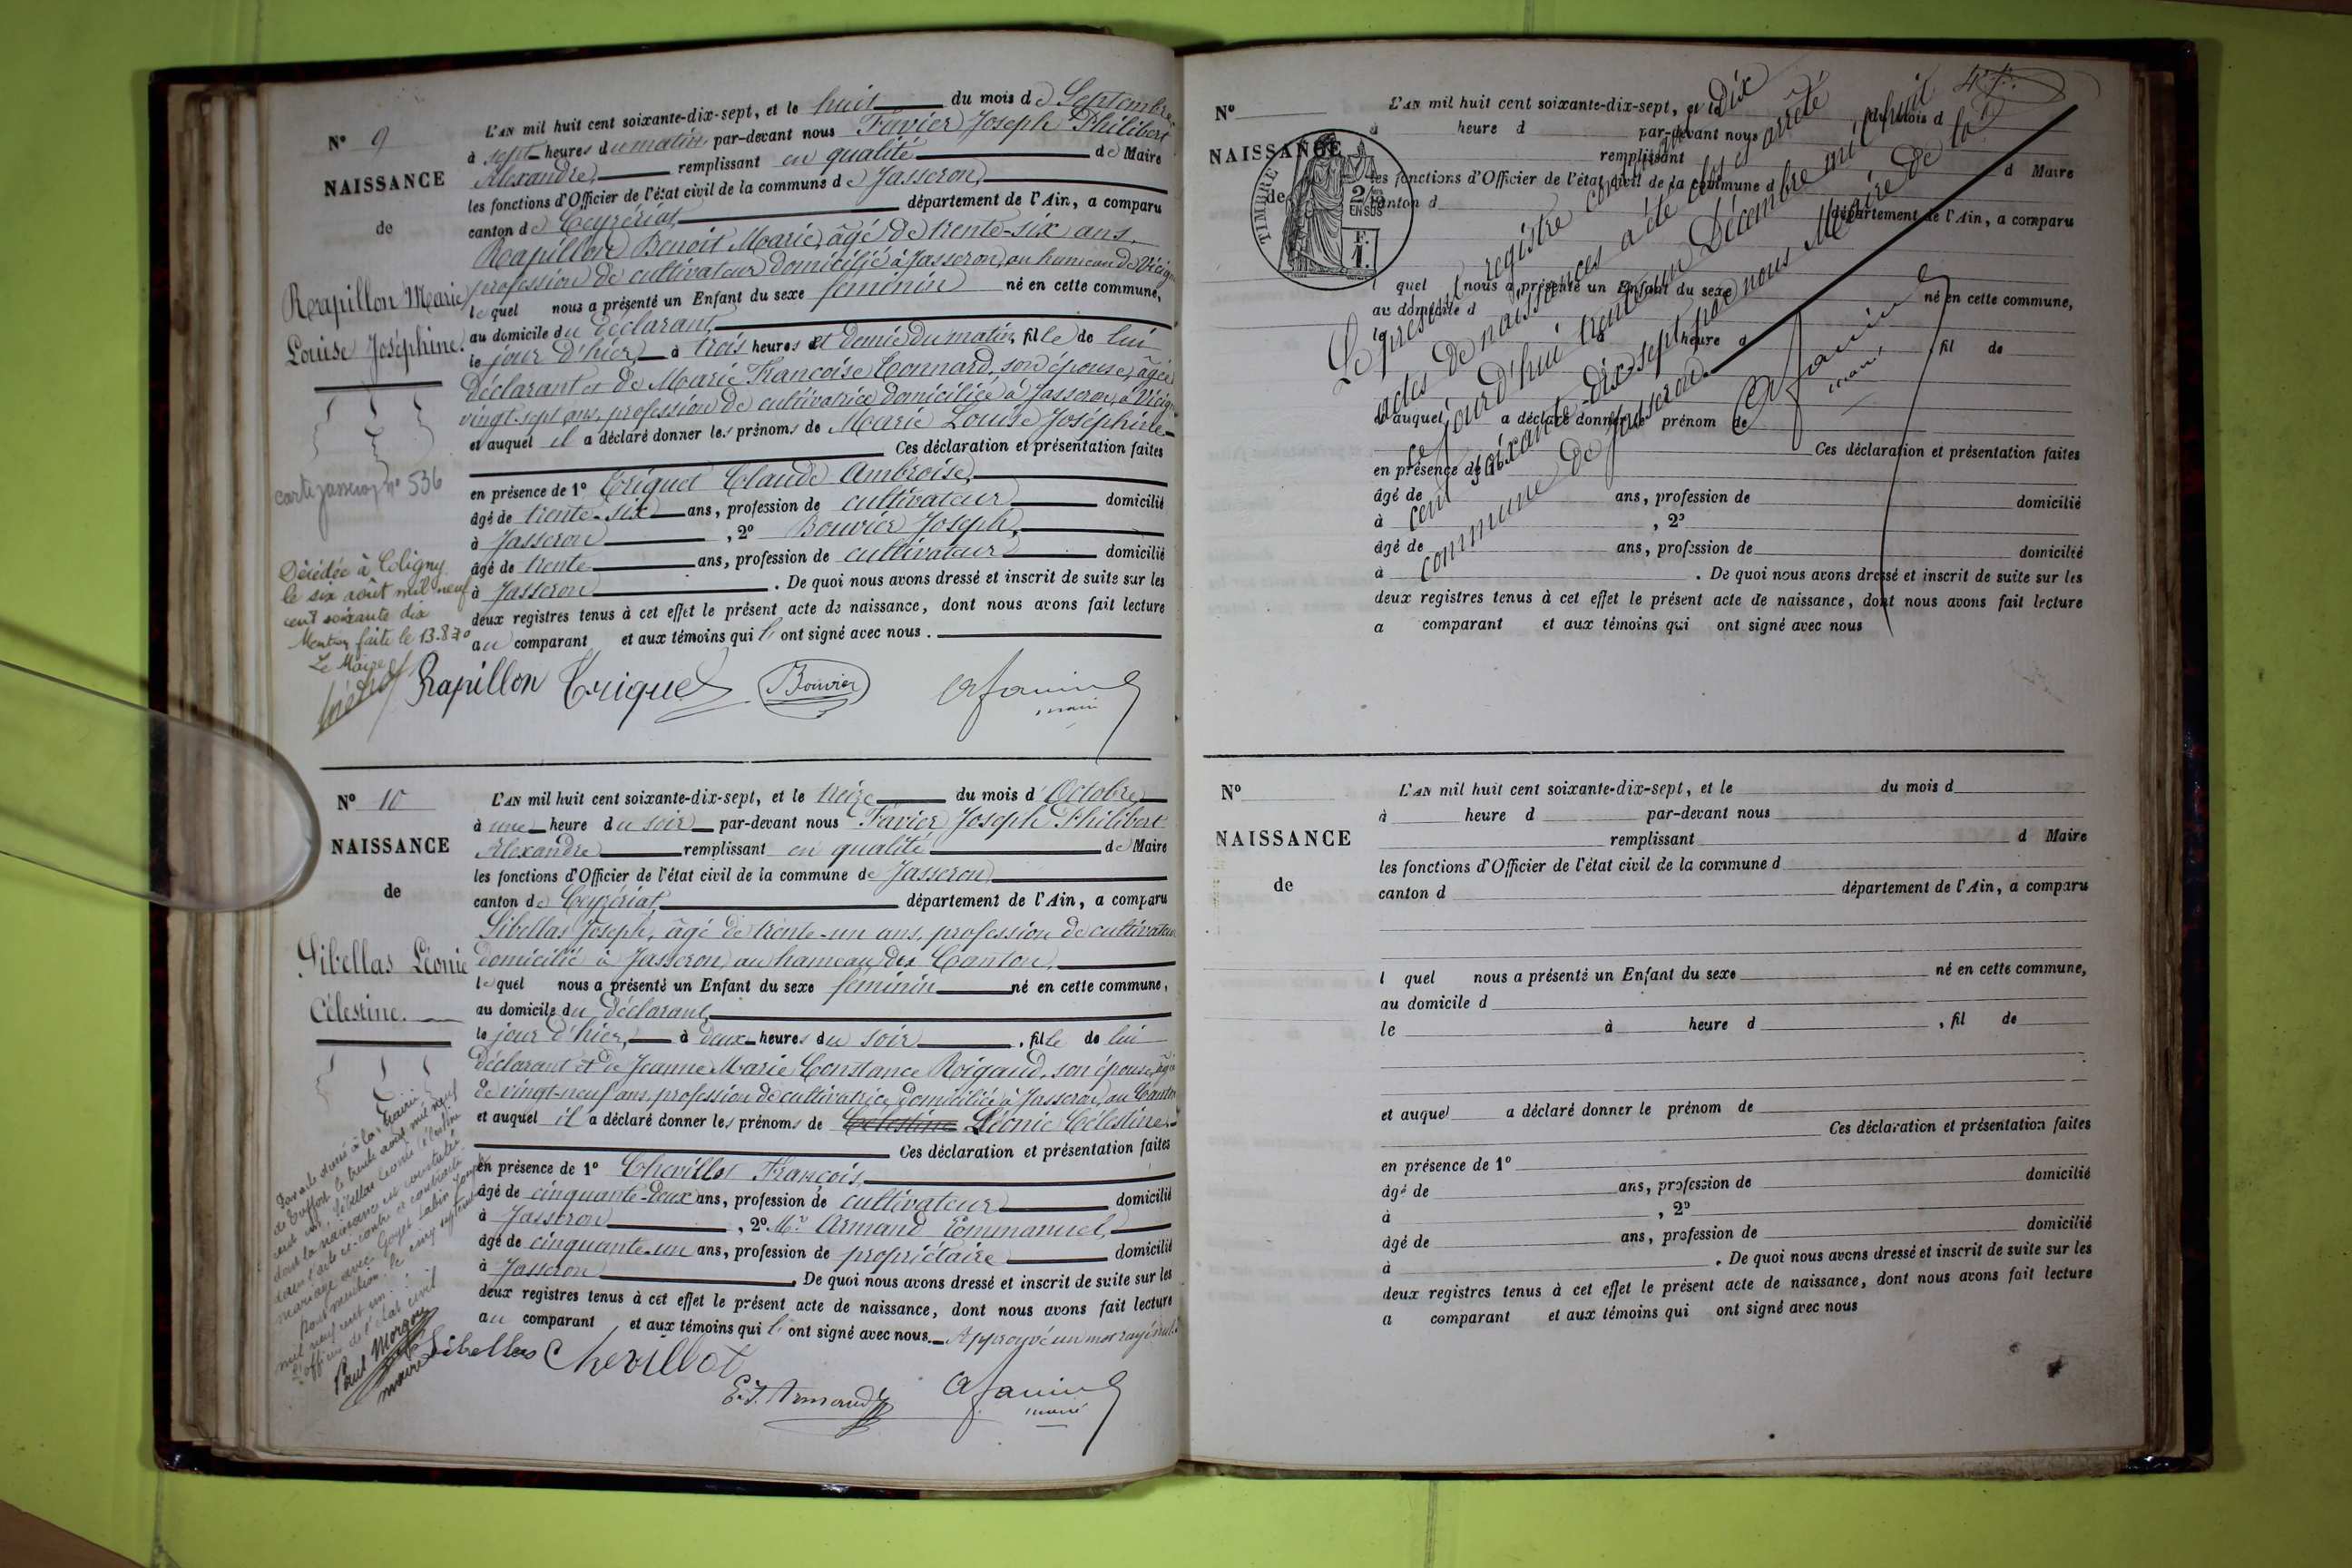 N° 9
NAISSANCE
de
Rapillon Marie
Louise Joséphine.
carte jasseron n° 536
Décédée à Coligny
le six août mil neuf
cent soixante dix
Mention faite le 13.8.70
Le Maire
L'AN mil huit cent soixante-dix-sept, et le huit du mois de Septembre
à sept heures du matin par-devant nous Favier Joseph Philibert
Alexandre, remplissant en qualité de Maire
les fonctions d'Officier de l'état civil de la commune de Jasseron,
canton de Ceyzériat, département de l'Ain, a comparu
Rapillon Benoit Marie, âgé de trente-six ans,
profession de cultivateur domicilié à Jasseron, au hameau de
lequel nous a présenté un Enfant du sexe féminin né en cette commune,
au domicile du déclarant,
le jour d'hier, à trois heures et demie du matin, fille de lui
déclarant et de Marie Françoise Connard, son épouse, âgée
vingt-sept ans, profession de cultivatrice domiciliée à Jasseron, à
et auquel il a déclaré donner les prénoms de Marie Louise Joséphine
Ces déclaration et présentation faites
en présence de 1° Triquet Claude Ambroise,
âgé de trente-six ans, profession de cultivateur domicilié
à Jasseron, 2° Bouvier Joseph,
âgé de trente ans, profession de cultivateur domicilié
à Jasseron. De quoi nous avons dressé et inscrit de suite sur les
deux registres tenus à cet effet le présent acte de naissance, dont nous avons fait lecture
au comparant et aux témoins qui l' ont signé avec nous.
Rapillon Triquet Bouvier A favier
maire
N° 10
NAISSANCE
de
Sibellas Léonie
Célestine.
Par acte dressé à la Mairie
de Treffort le trente août mil neuf
cent un, Sibellas Léonie Célestine
dont la naissance est constatée
dans l'acte ci-contre a contracté
mariage avec Goyet Joseph
Pour mention le cinq septembre
mil neuf cent un.
L'officier de l'état civil
Paul Morgon
maire
L'AN mil huit cent soixante-dix-sept, et le treize du mois d'Octobre
à une heure du soir par-devant nous Favier Joseph Philibert
Alexandre remplissant en qualité de Maire
les fonctions d'Officier de l'état civil de la commune de Jasseron,
canton de Ceyzériat, département de l'Ain, a comparu
Sibellas Joseph, âgé de trente-un ans, profession de cultivateur
domicilié à Jasseron, au hameau des Canton,
lequel nous a présenté un Enfant du sexe féminin né en cette commune,
au domicile du déclarant,
le jour d'hier, à deux heures du soir, fille de lui
déclarant et de Jeanne Marie Constance Rigaud, son épouse, âgée
de vingt-neuf ans, profession de cultivatrice, domiciliée à Jasseron, au Canton
et auquel il a déclaré donner les prénoms de Célestine Léonie Célestine.
Ces déclaration et présentation faites
en présence de 1° Chevillot François,
âgé de cinquante-deux ans, profession de cultivateur domicilié
à Jasseron, 2° Mr Armand Emmanuel,
âgé de cinquante-un ans, profession de propriétaire domicilié
à Jasseron. De quoi nous avons dressé et inscrit de suite sur les
deux registres tenus à cet effet le présent acte de naissance, dont nous avons fait lecture
au comparant et aux témoins qui l' ont signé avec nous. Approuvé un mot rayé nul.
Sibellas Chevillot
E. J. Armand A favier
maire
N°
NAISSANCE
de
TIMBRE
2/10 EN SUS
F. 1.
L'AN mil huit cent soixante-dix-sept, et le du mois d
à heure d par-devant nous
remplissant d Maire
les fonctions d'Officier de l'état civil de la commune d
canton d département de l'Ain, a comparu
l quel nous a présenté un Enfant du sexe né en cette commune,
au domicile d
le à heure d , fil de
et auquel a déclaré donner le prénom de
Ces déclaration et présentation faites
en présence de 1°
âgé de ans, profession de domicilié
à , 2°
âgé de ans, profession de domicilié
à . De quoi nous avons dressé et inscrit de suite sur les
deux registres tenus à cet effet le présent acte de naissance, dont nous avons fait lecture
a comparant et aux témoins qui ont signé avec nous
Le présent registre contenant dix
actes de naissances a été clos et arrêté
ce jourd'hui trente-un Décembre mil huit
cent soixante-dix-sept par nous Maire de la
commune de Jasseron.
A favier
maire
N°
NAISSANCE
de
L'AN mil huit cent soixante-dix-sept, et le du mois d
à heure d par-devant nous
remplissant d Maire
les fonctions d'Officier de l'état civil de la commune d
canton d département de l'Ain, a comparu
l quel nous a présenté un Enfant du sexe né en cette commune,
au domicile d
le à heure d , fil de
et auquel a déclaré donner le prénom de
Ces déclaration et présentation faites
en présence de 1°
âgé de ans, profession de domicilié
à , 2°
âgé de ans, profession de domicilié
à . De quoi nous avons dressé et inscrit de suite sur les
deux registres tenus à cet effet le présent acte de naissance, dont nous avons fait lecture
a comparant et aux témoins qui ont signé avec nous